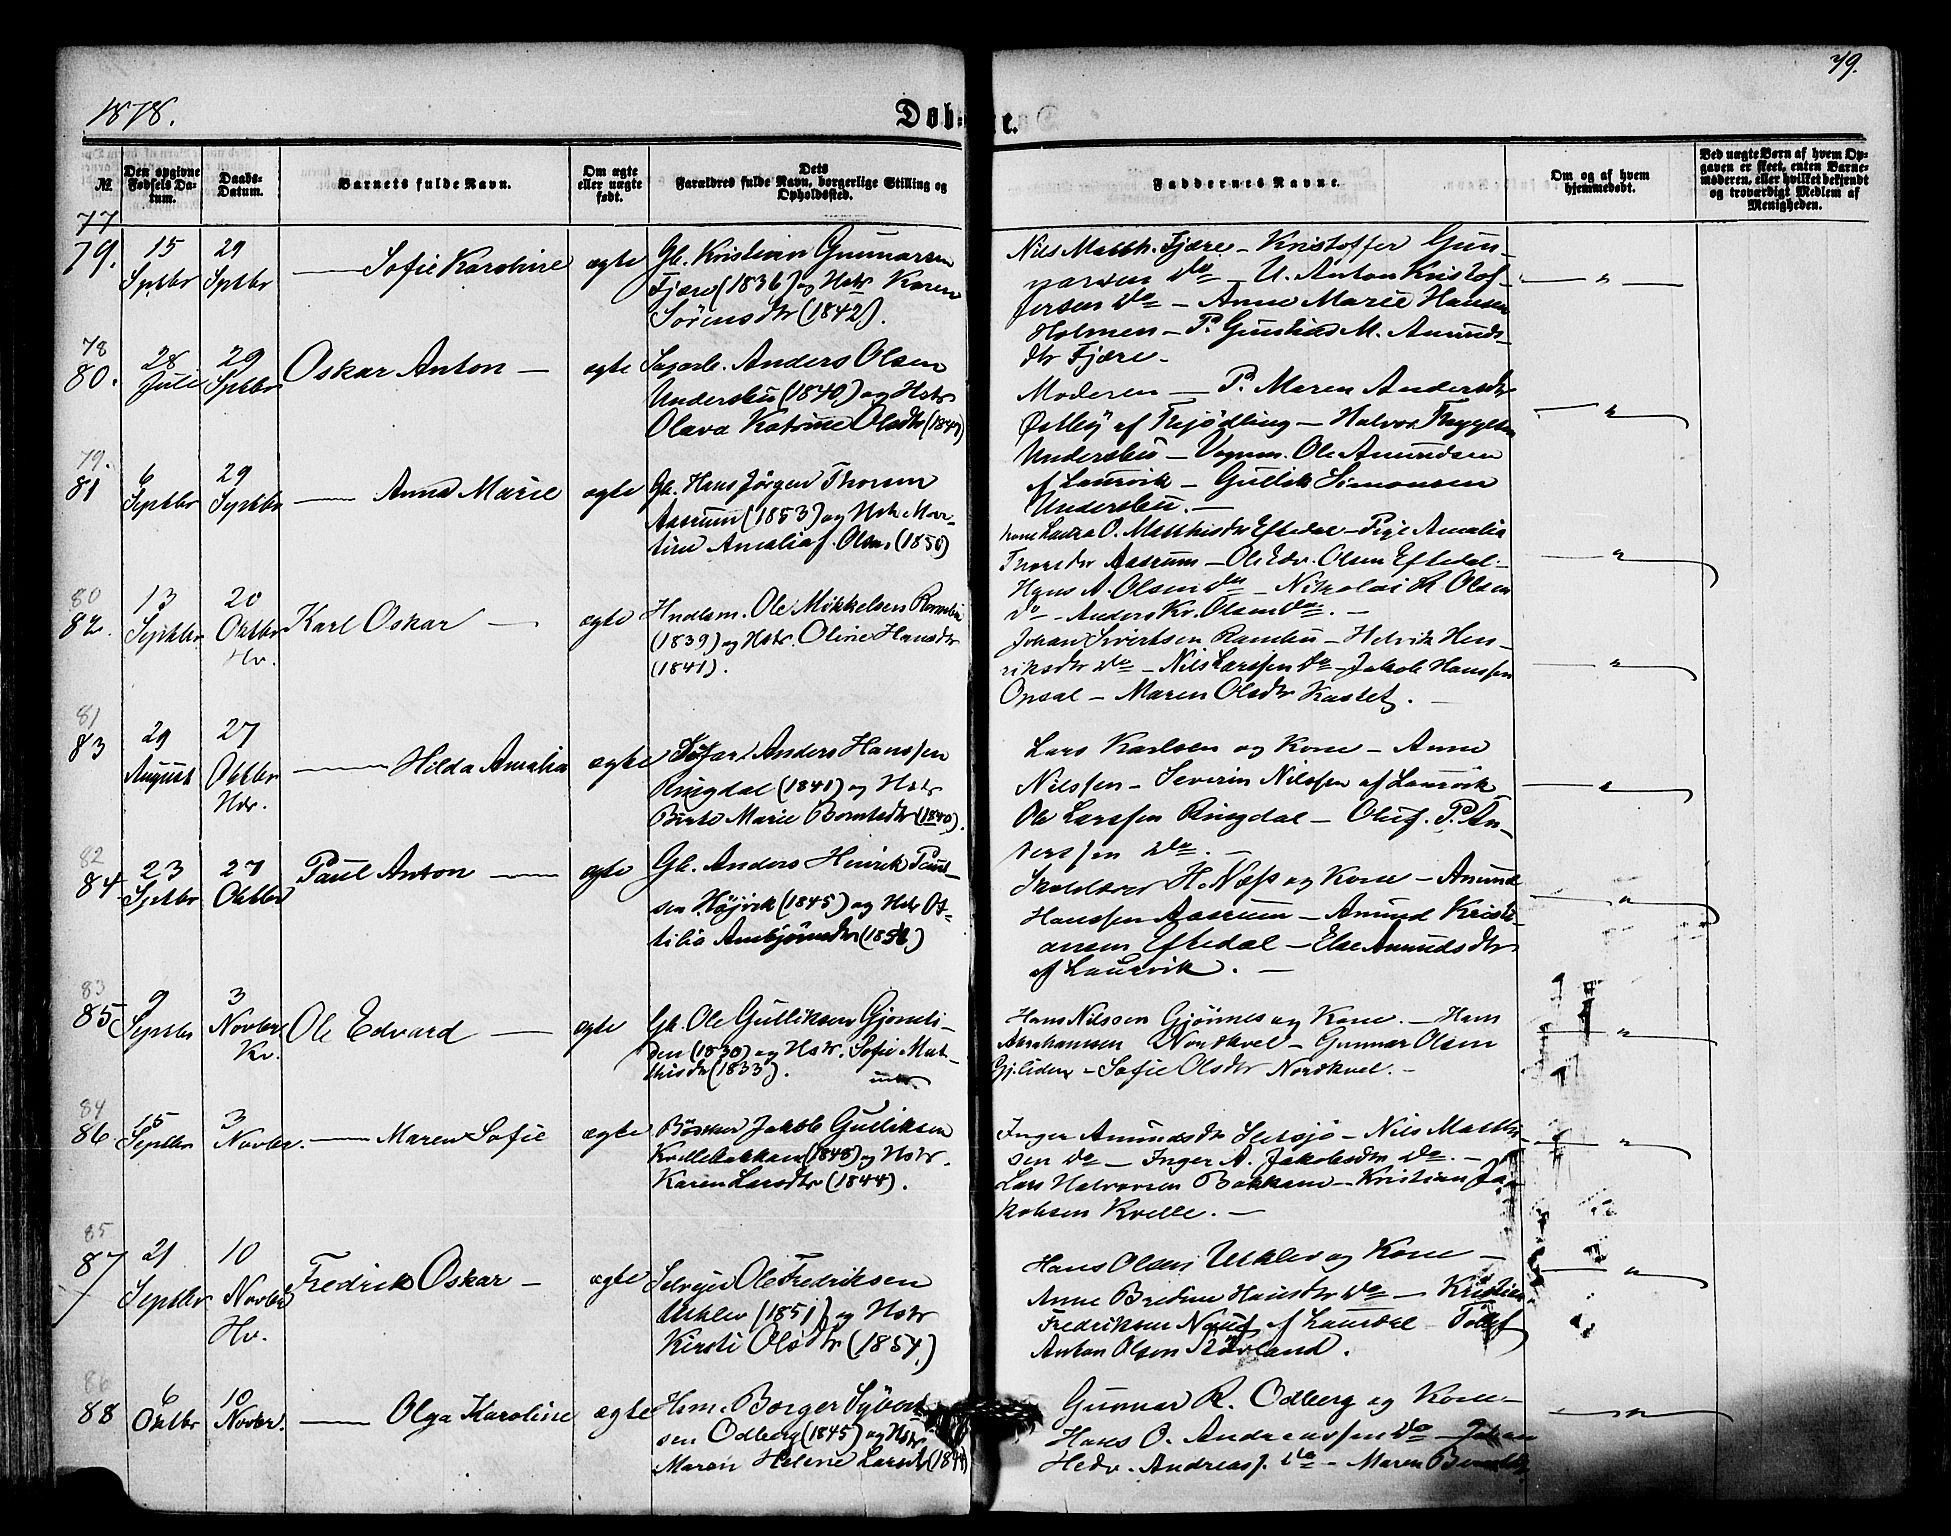 1878.
Døbte.
79.
No.
Den opgivne Fødsels Datum.
Daabs-Datum.
Barnets fulde Navn.
Om ægte eller uægte født.
Dets Forældres fulde Navn, borgerlige Stilling og Opholdssted.
Faddernes Navne.
Om og af hvem hjemmedøbt.
Ved uægte Børn af hvem Opgaven er skeet, enten Barnemoderen, eller hvilket bekjendt og troværdigt Medlem af Menigheden.
77
79. 15 Septbr 29 Septbr — Sofie Karoline ægte
Gb. Kristian Gunnarsen
Fjære (1836) og Hstr Karen
Sørensdtr (1842).
Nils Matth. Fjære — Kristoffer Gun-
narsen do — U. Anton Kristof-
fersen do — Anne Marie Hansen
Holmen — P. Gunhild M. Amunds-
dtr Fjære —
78
80. 28 Juli 29 Septbr Oskar Anton — ægte
Anders Olsen
Undersbu (1840) og Hstr
Olava Katrine Olsdtr
Moderen — P. Maren Andersdtr
Østby af Tjødling — Halvor
Undersbu — Vognm. Ole Amundsen
af Laurvik — Gullik Simonsen
Undersbu. —
79.
81 6 Septbr 29 Septbr — Anna Marie ægte
Gb. Hans Jørgen Thorsen
Aasrum (1853) og Hstr Mar-
tine Amalia f. Olsen (1850)
Kone Laura O. Matthisdtr Eftedal — Pige Amalia
Thorsdtr Aasrum — Ole Edv. Olsen Eftedal —
Hans A. Olsen do — Nikolai Olsen
do — Anders Kr. Olsen do. —
80
82. 13 Septbr 20 Oktbr Hv. Karl Oskar — ægte
Hndlsm. Ole Mikkelsen
(1839) og Hstr. Oline Hansdtr
(1841).
Johan Sivertsen Rambu — Helvik Hen-
riksdtr do — Nils Larssen do — Jakob Hanssen
Opsal — Maren Olsdtr Kastet. —
81
83 29 August 27 Oktbr Hdr. — Hilda Amalia ægte
Anders Hanssen
Ringdal (1841) og Hstr
Birte Marie Borntsdtr (1840).
Lars Karlsen og Kone — Anne
Nilssen — Severin Nilssen af Laurvik
Ole Larssen Ringdal — Oluf. P. An-
derssen do. —
82
84 23 Septbr 27 Oktbr Paul Anton — ægte
Gb. Anders Hinrik Paul-
sen Højvik (1845) og Hstr Ot-
tilia Ambjørnsdtr
Skolelærer H. Næss og Kone — Amund
Hanssen Aasrum — Amund Kristi-
ansen Eftedal — Else Amundsdtr
af Laurvik. —
83
85 9 Septbr 3 Novbr Kv. Ole Edvard — ægte
Gb. Ole Gulliksen Gjønli-
den (1830) og Hstr. Sofie Mat-
thisdtr (1833).
Hans Nilssen Gjønnes og Kone. — Hans
Abrahamsen Nordkvel — Gunnar Olsen
Gj.liden — Sofie Olsdtr Nordkvel. —
84
86. 15 Septbr 3 Novbr. — Maren Sofie ægte
Bødker Jakob Gulliksen
Kvellebakken (1848) og Hstr.
Karen Larsdtr (1844).
Inger Amundsdtr — Nils Matthi-
sen do — Inger A. Jakobsdtr do. —
Lars Halvorsen Bakkane — Kristian Ja-
kobsen Kvelle. —
85
87 21 Septbr 10 Novbr Hv. Fredrik Oskar — ægte
Selvejer Ole Fredriksen
Utklev (1851) og Hstr
Kirsti Olsdtr (1854.)
Hans Olsen Utklev og Kone —
Anne Bredine Hansdtr do — Kristian
Fredriksen af Laurdal — Tollef
Anton Olsen
86
88 6 Oktbr 10 Novbr. — Olga Karoline ægte
Hsm. Borger Sybert-
sen Odberg (1845) og Hstr
Maren Helene Larsdtr
Gunnar R. Odberg og Kone —
Hans O. Andreassen do — Johan
Hedv. Andreasf. do — Maren